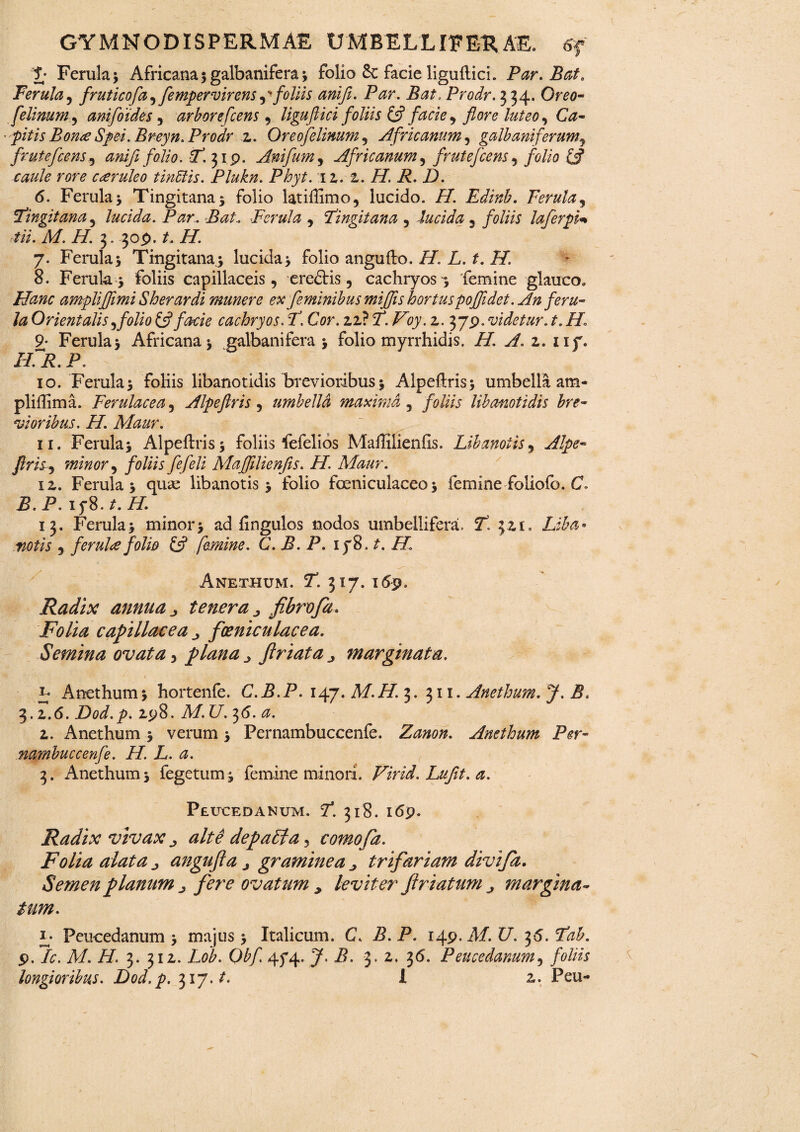 GYMNODISPERMAE UMBELLIFERAE. 65
5. Ferula; Africana; galbanifera; folio & facie ligustici. Par. Bat.
Ferula, fruticosa, sempervirens, foliis anisi. Par. Bat. Prodr. 334. Oreo-
selinum, anisoides, arborescens, ligustici foliis & facie, flore luteo, Ca-
pitis Bonæ Spei. Breyn. Prodr 2. Oreoselinum, Africanum, galbaniferum,
frutescens, anisi folio. T. 319. Anisum, Africanum, frutescens, folio &
caule rore cæruleo tinctis. Plukn. Phyt. 12. 2. H. R. D.
6. Ferula; Tingitana; folio latissimo, lucido. H. Edinb. Ferula,
Tingitana, lucida. Par. Bat. Ferula, Tingitana, lucida, foliis laserpi-
tii. M. H. 3. 309. t. H.
7. Ferula; Tingitana; lucida; folio angusto. H. L. t. H.
8. Ferula; foliis capillaceis, erectis, cachryos; semine glauco.
Hanc amplissimi Sherardi munere ex seminibus missis hortus possidet. An feru-
la Orientalis, folio & facie cachryos. T. Cor. 22? T. Voy. 2. 379. videtur. t. H.
9. Ferula; Africana; galbanifera; folio myrrhidis. H. A. 2. 115.
H. R. P.
10. Ferula; foliis libanotidis brevioribus; Alpestris; umbellâ am-
plissimâ. Ferulacea, Alpestris, umbellâ maximâ, foliis libanotidis bre-
vioribus. H. Maur.
11. Ferula; Alpestris; foliis seselios Massiliensis. Libanotis, Alpe-
stris, minor, foliis seseli Massiliensis. H. Maur.
12. Ferula; quæ libanotis; folio fœniculaceo; semine folioso. C.
B. P. 158. t. H.
13. Ferula; minor; ad singulos nodos umbellifera. T. 321. Liba-
notis, ferulæ folio & semine. C. B. P. 158. t. H.
ANETHUM. T. 317. 169.
Radix annua, tenera, fibrosa.
Folia capillacea, fœniculacea.
Semina ovata, plana, striata, marginata.
1. Anethum; hortense. C. B. P. 147. M. H. 3. 311. Anethum. J. B.
3. 2. 6. Dod. p. 298. M. U. 36. a.
2. Anethum; verum; Pernambuccense. Zanon. Anethum Per-
nambuccense. H. L. a.
3. Anethum; segetum; semine minori. Virid. Lusit. a.
PEUCEDANUM. T. 318. 169.
Radix vivax, altè depacta, comosa.
Folia alata, angusta, graminea, trifariam divisa.
Semen planum, fere ovatum, leviter striatum, margina-
tum.
1. Peucedanum; majus; Italicum. C. B. P. 149. M. U. 36. Tab.
9. Ic. M. H. 3. 312. Lob. Obs. 454. J. B. 3. 2. 36. Peucedanum, foliis
longioribus. Dod. p. 317. t. I 2. Peu-